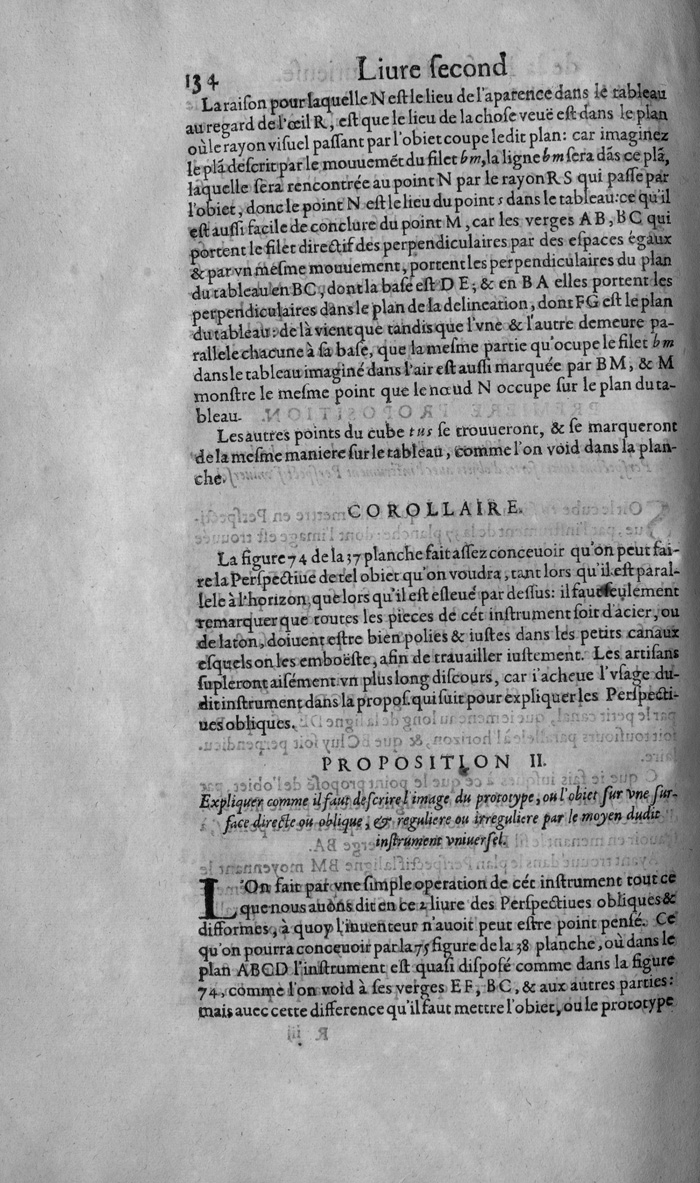 134
Liure ſecond
La raiſon pour laquelle N eſt le lieu de l'aparence dans le tableau
au regard de l'œil R, eſt que le lieu de la choſe veuë eſt dans le plan
où le rayon viſuel paſſant par l'obiet coupe ledit plan: car imaginez
le plã deſcrit par le mouuemẽt du filet bm, la ligne bm ſera dãs ce plã,
laquelle ſera rencontrée au point N par le rayon R S qui paſſe par
l'obiet, donc le point N eſt le lieu du point s dans le tableau: ce qu'il
eſt auſſi facile de conclure du point M, car les verges AB, BC qui
portent le filet directif des perpendiculaires par des eſpaces égaux
& par vn meſme mouuement, portent les perpendiculaires du plan
du tableau en BC, dont la baſe eſt D E; & en B A elles portent les
perpendiculaires dans le plan de la delineation, dont FG eſt le plan
du tableau: de là vient que tandis que l'vne & l'autre demeure pa-
rallele chacune à ſa baſe, que la meſme partie qu'ocupe le filet bm
dans le tableau imaginé dans l'air eſt auſſi marquée par BM, & M
monſtre le meſme point que le nœud N occupe ſur le plan du ta-
bleau.
Les autres points du cube tus ſe trouueront, & ſe marqueront
de la meſme maniere ſur le tableau, comme l'on void dans la plan-
che.
COROLLAIRE.
La figure 74 de la 37 planche fait aſſez conceuoir qu'on peut fai-
re la Perſpectiue de tel obiet qu'on voudra, tant lors qu'il eſt paral-
lele à l'horizon, que lors qu'il eſt eſleué par deſſus: il faut ſeulement
remarquer que toutes les pieces de cét inſtrument ſoit d'acier, ou
de laton, doiuent eſtre bien polies & iuſtes dans les petits canaux
eſquels on les emboëſte, afin de trauailler iuſtement. Les artiſans
ſupleront aiſément vn plus long diſcours, car i'acheue l'vſage du-
dit inſtrument dans la propoſ. qui ſuit pour expliquer les Perſpecti-
ues obliques.
PROPOSITION II.
Expliquer comme il faut deſcrire l'image du prototype, ou l'obiet ſur vne ſur-
face directe ou oblique, & reguliere ou irreguliere par le moyen dudit
inſtrument vniuerſel.
L'On fait par vne ſimple operation de cét inſtrument tout ce
que nous auons dit en ce 2 liure des Perſpectiues obliques &
difformes, à quoy l'inuenteur n'auoit peut eſtre point penſé. Ce
qu'on pourra conceuoir par la 75 figure de la 38 planche, où dans le
plan ABCD l'inſtrument eſt quaſi diſpoſé comme dans la figure
74, comme l'on void à ſes verges EF, BC, & aux autres parties:
mais auec cette difference qu'il faut mettre l'obiet, ou le prototype